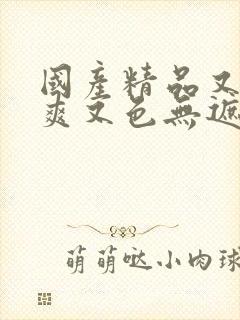 國產精品又
爽又色無遮
萌萌哒小肉球